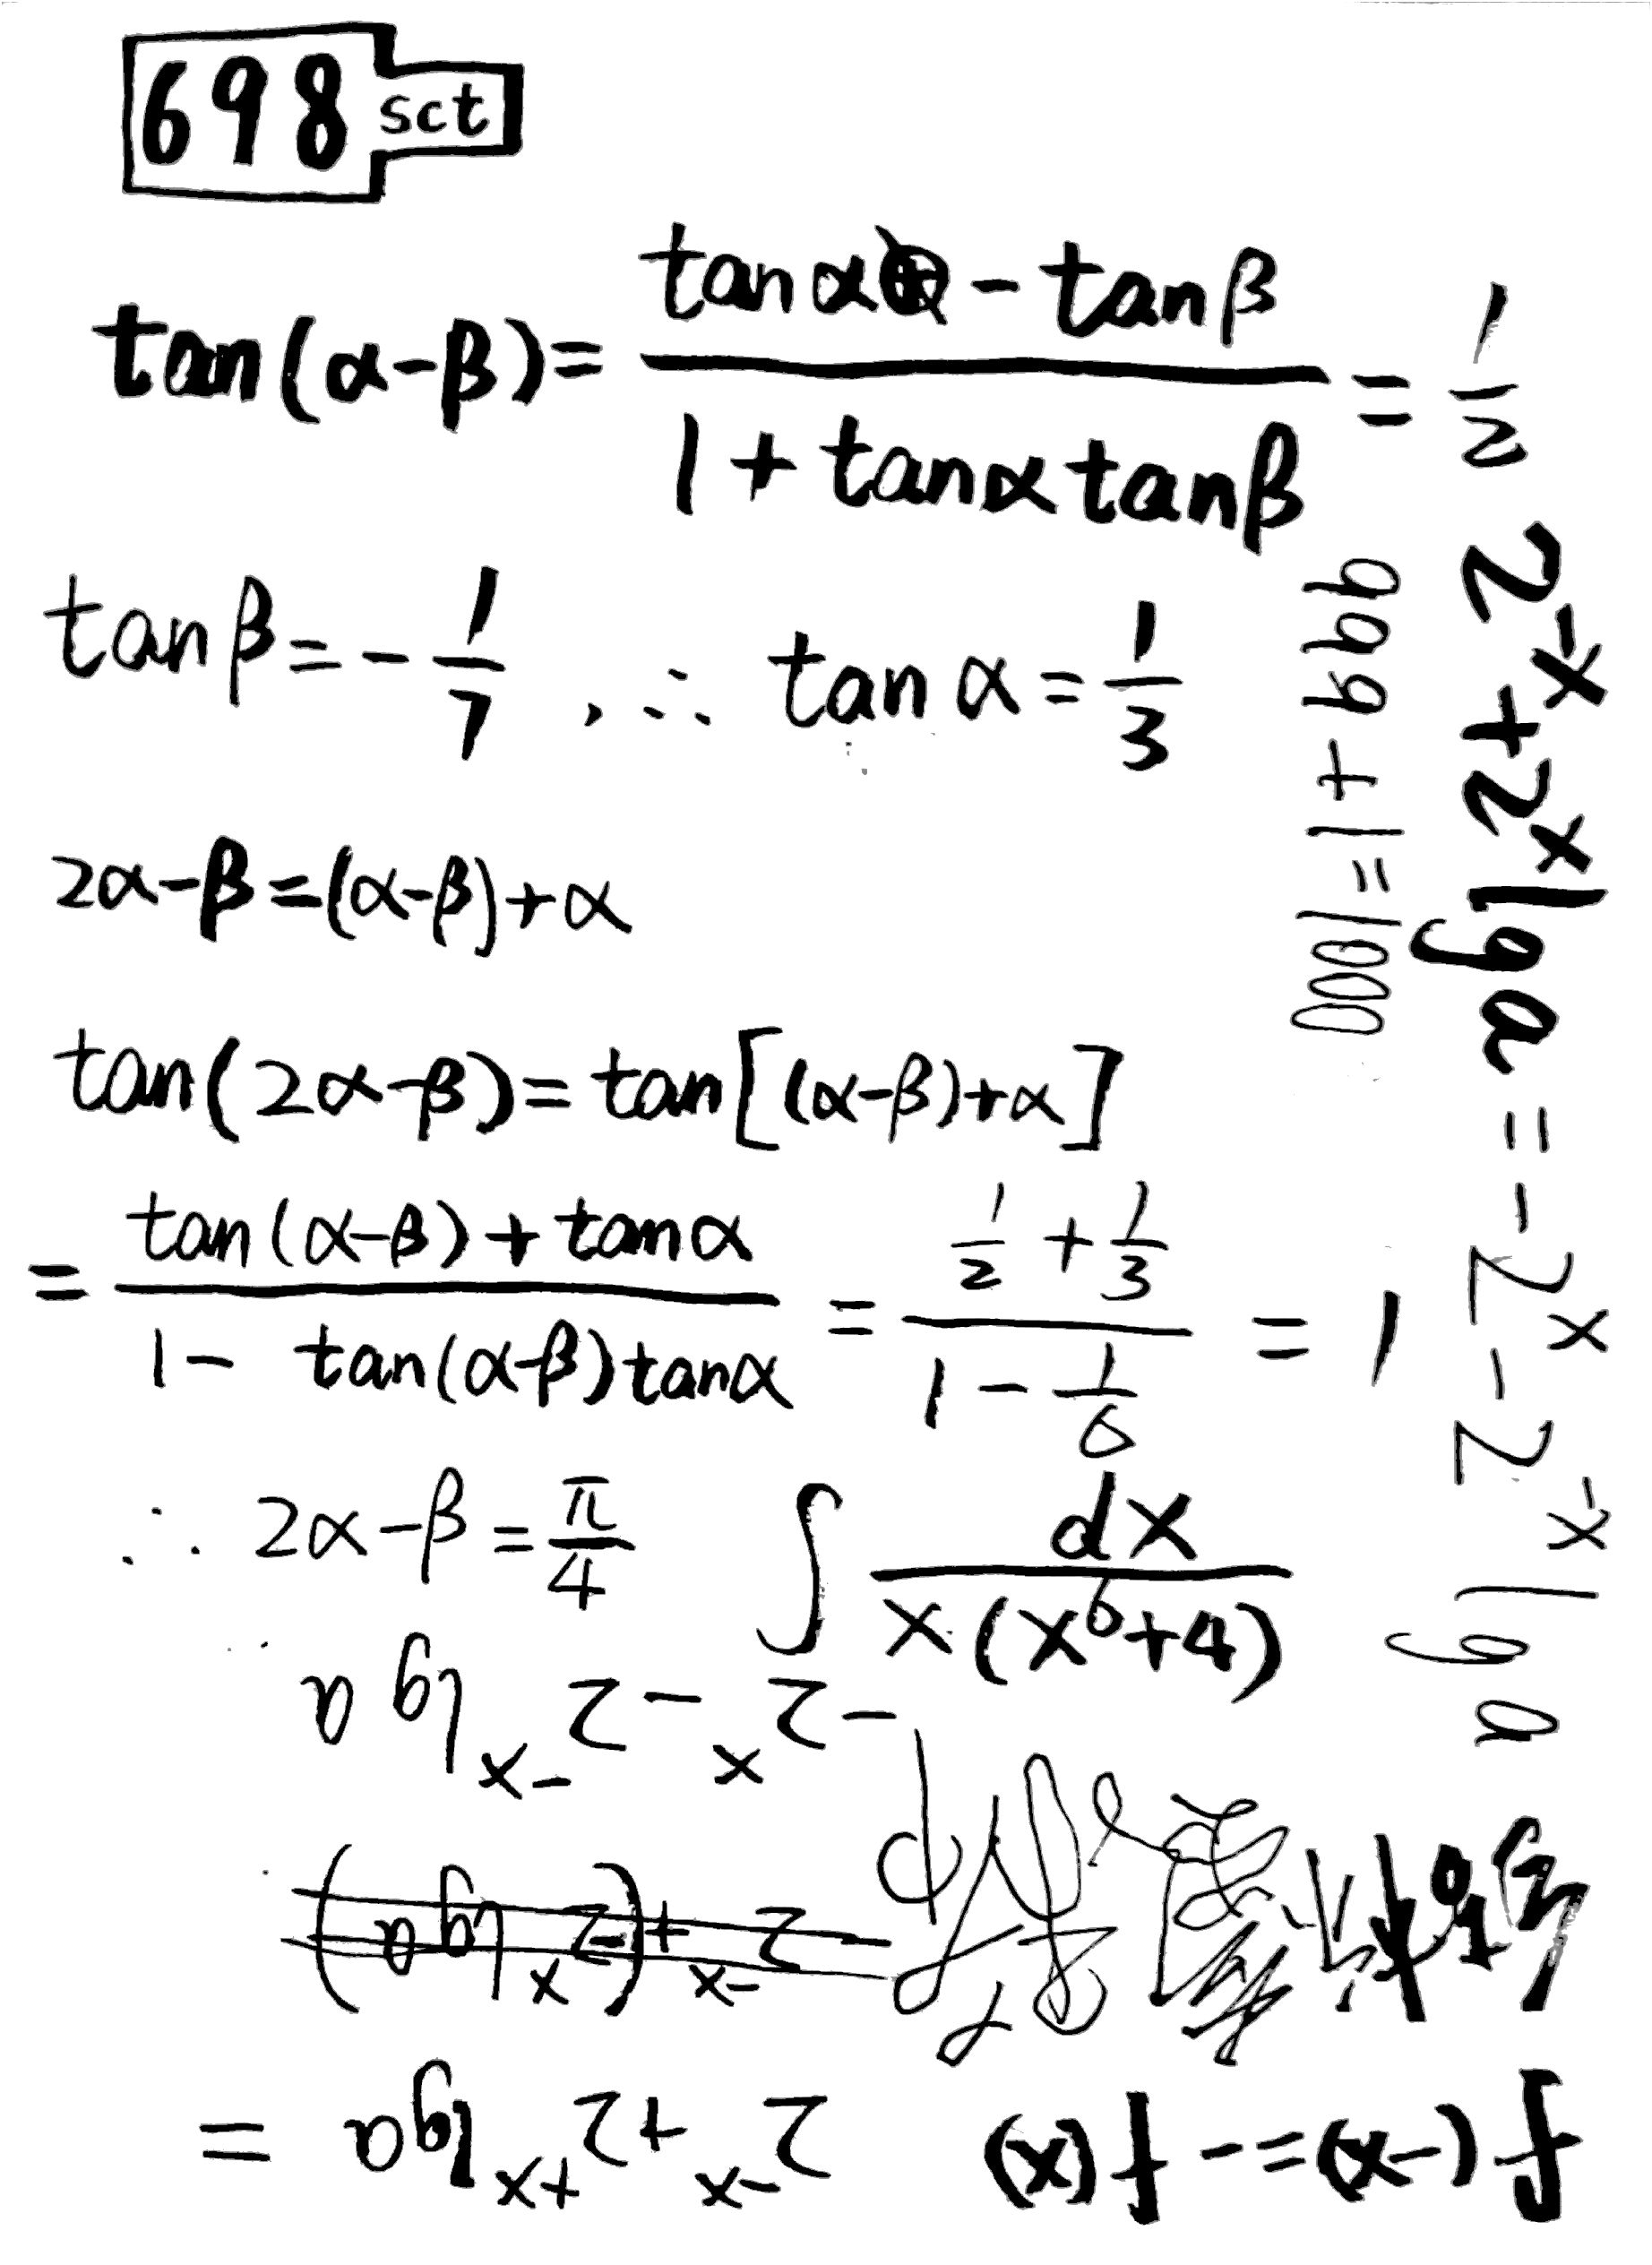 698 sct
tan(α-β)=(tanα-tanβ)/(1+tanαtanβ)=1/2
tanβ=-1/7,∴tanα=1/3
2α-β=(α-β)+α
tan(2α-β)=tan[(α-β)+α]
=(tan(α-β)+tanα)/(1-tan(α-β)tanα)=(1/2+1/3)/(1-1/6)=1
∴2α-β=π/4
∫dx/(x(x^6+4))
999+1=1000
2^-x+2^x lga=-2^x-2^-x lga
f(-x)=-f(x)
2^-x+2^+x lga=
2^-x+(-2^x lga)
-2^x-2^-x lga